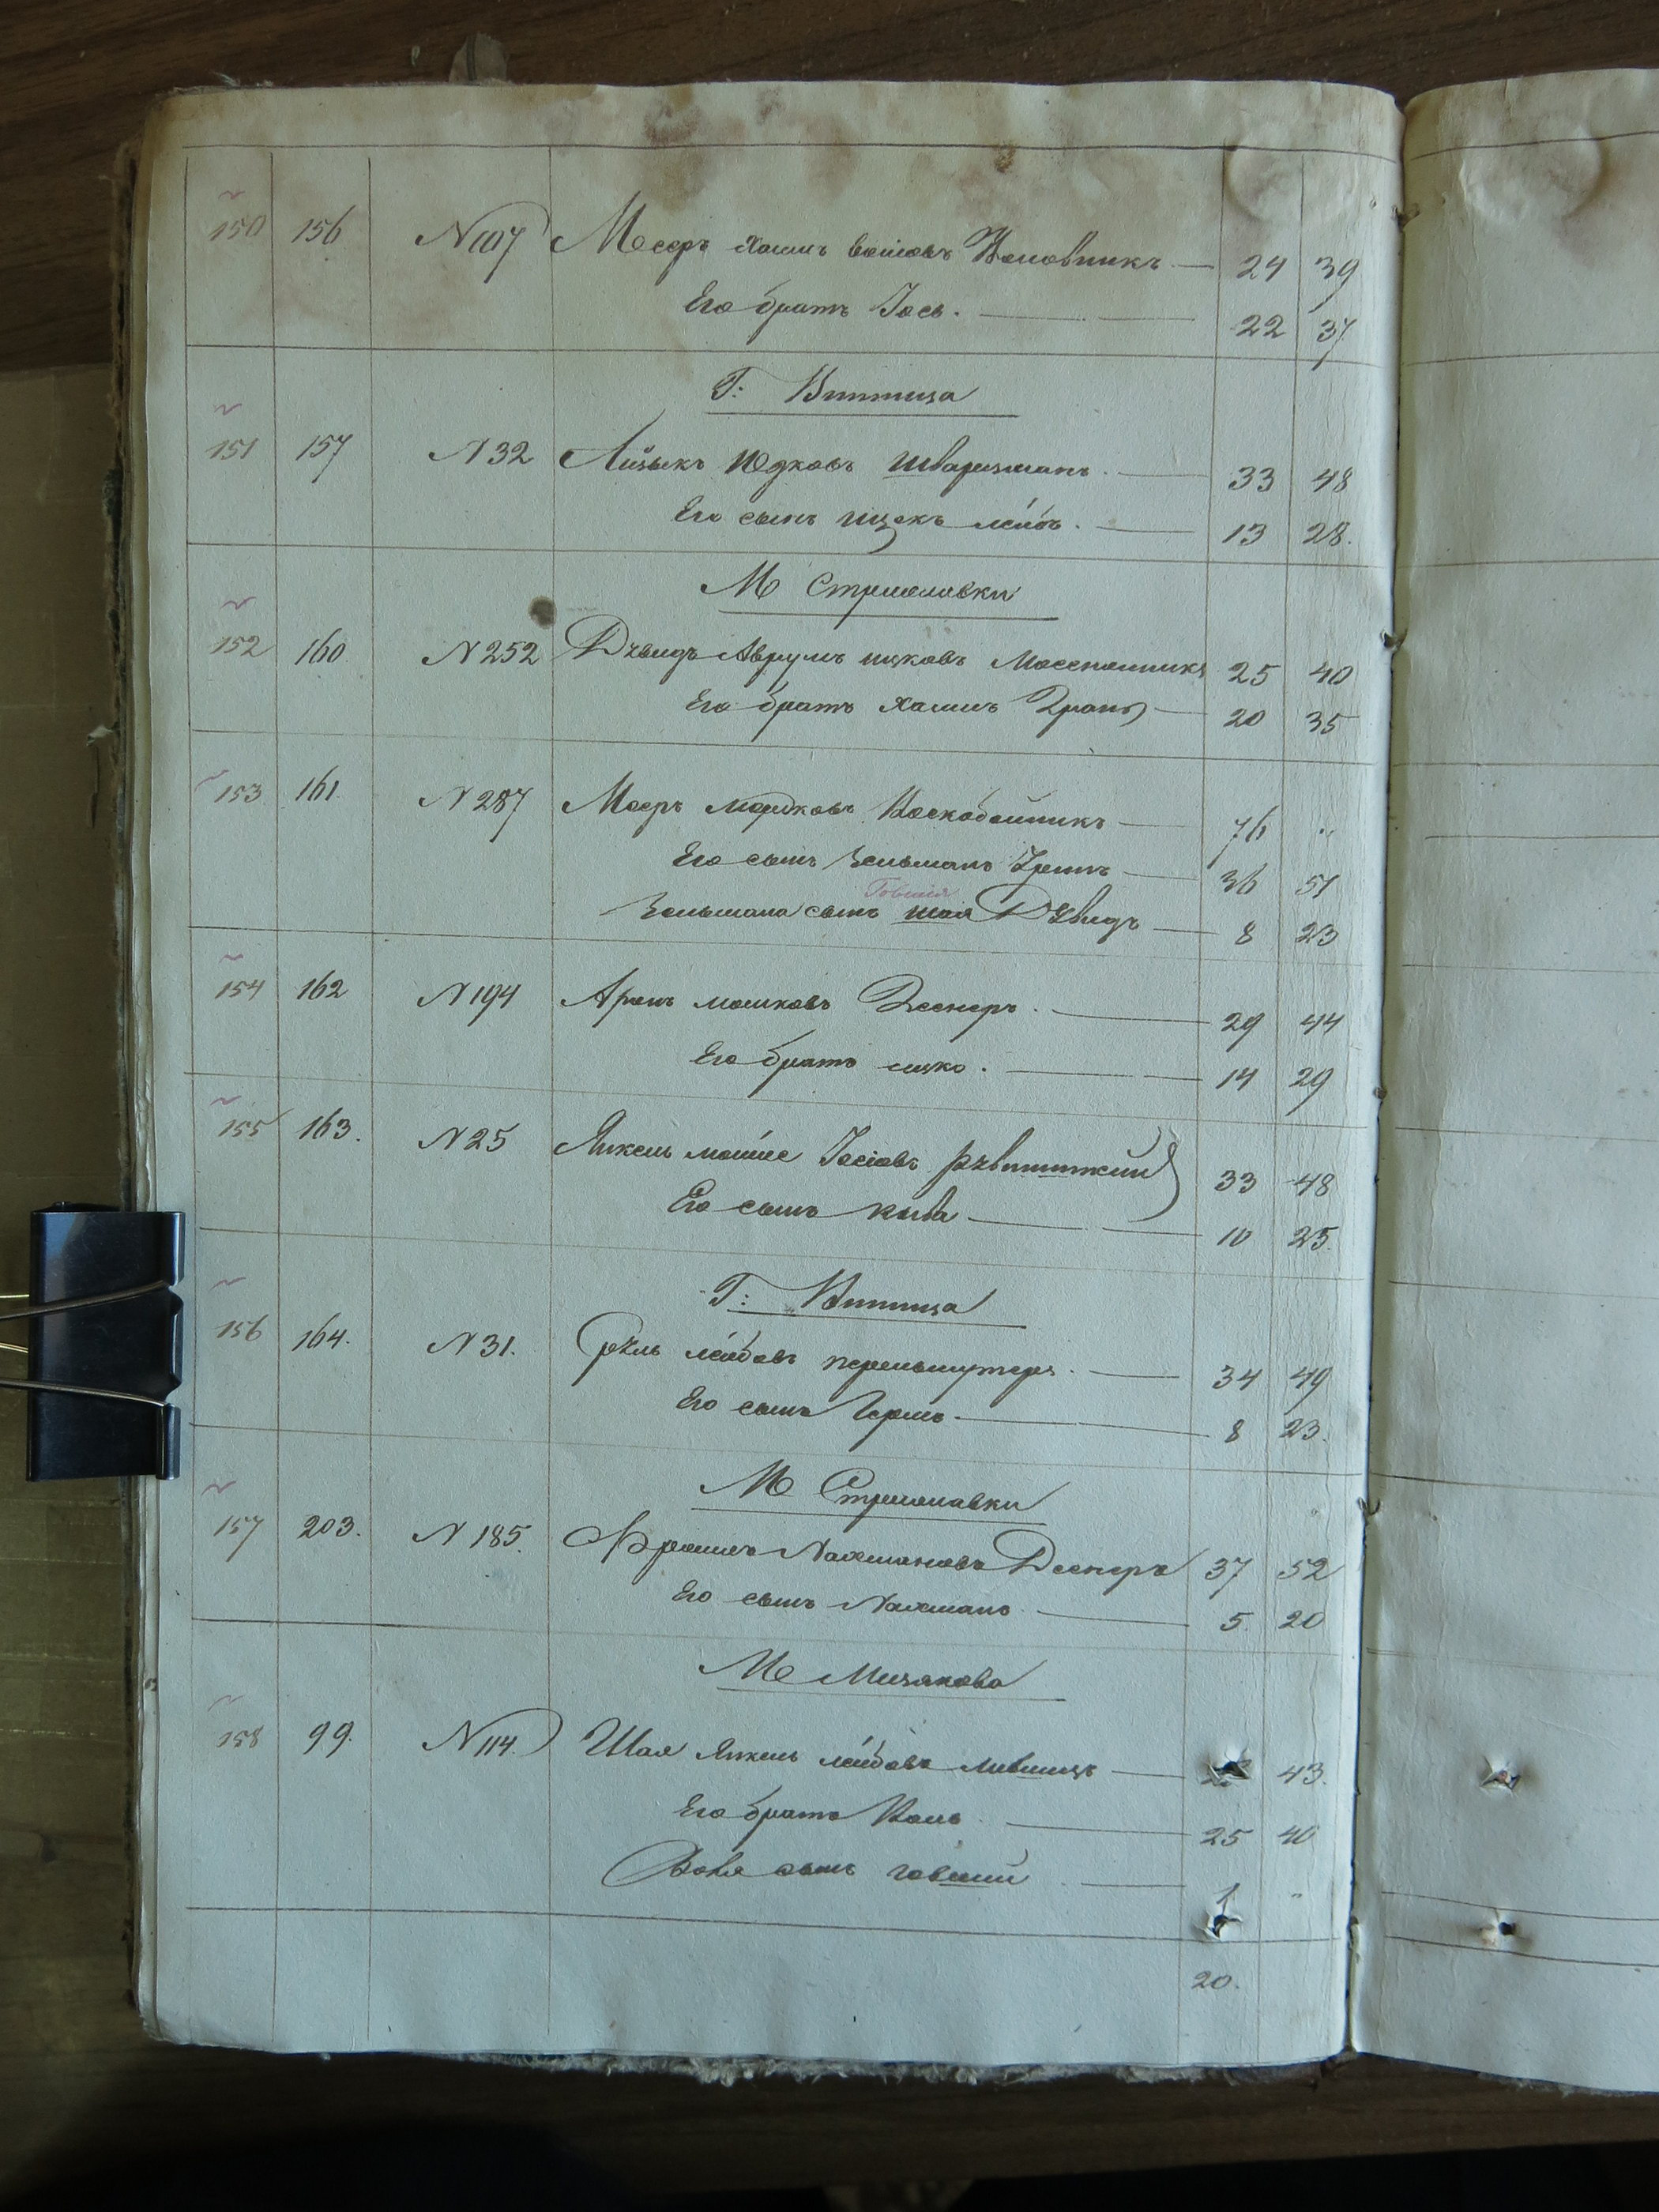 150 156 N107 Меер Хаимъ Воловъ Коновникъ — 24 39
Его братъ Іось. — 22 37
Г: Винница
151 157 N32 Айзыкъ Юдковъ Шварцманъ. — 33 48
Его сынъ Ицекъ Лейбъ. — 13 28.
М Стрижавки
152 160 N252 Дувидъ Аврумъ Ицковъ 25 40
Его братъ Хаимъ — 20 35
153 161 N287 Мееръ Мордковъ Воскобойникъ — 76 "
Его сынъ Зельманъ — 36 51
Говшія
Зельмана сынъ Шая Дувидъ — 8 23
154 162 N194 Аронъ Мошковъ — 29 44
Его братъ Ицко. — 14 29
155 163. N25 Янкель Мойше Іосіовъ 33 48
Его сынъ Кива — 10 25.
Г: Винница
156 164. N31. Срѵль Лейбовъ Перельмутеръ. — 34 49
Его сынъ Гершъ. — 8 23.
М Стрижавки
157 203. N185. Фроимъ Нахмановъ 37 52
Его сынъ Нахманъ — 5. 20
М Мизякова
158 99. N114. Шая Янкель Лейбовъ Лившицъ — 43.
Его братъ Воль — 25 40
сынъ Говшій — 1 "
20.